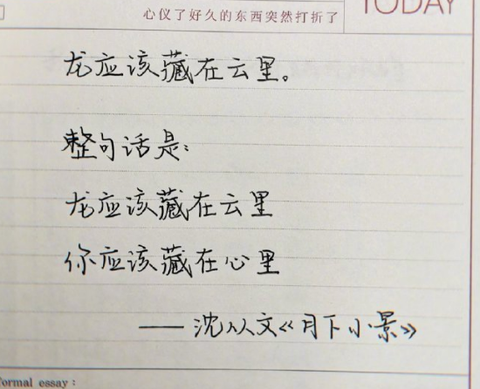 TODAY
心仪了好久的东西突然打折了
龙应该藏在云里。
整句话是:
龙应该藏在云里
你应该藏在心里
——沈从文《月下小景》
formal essay: